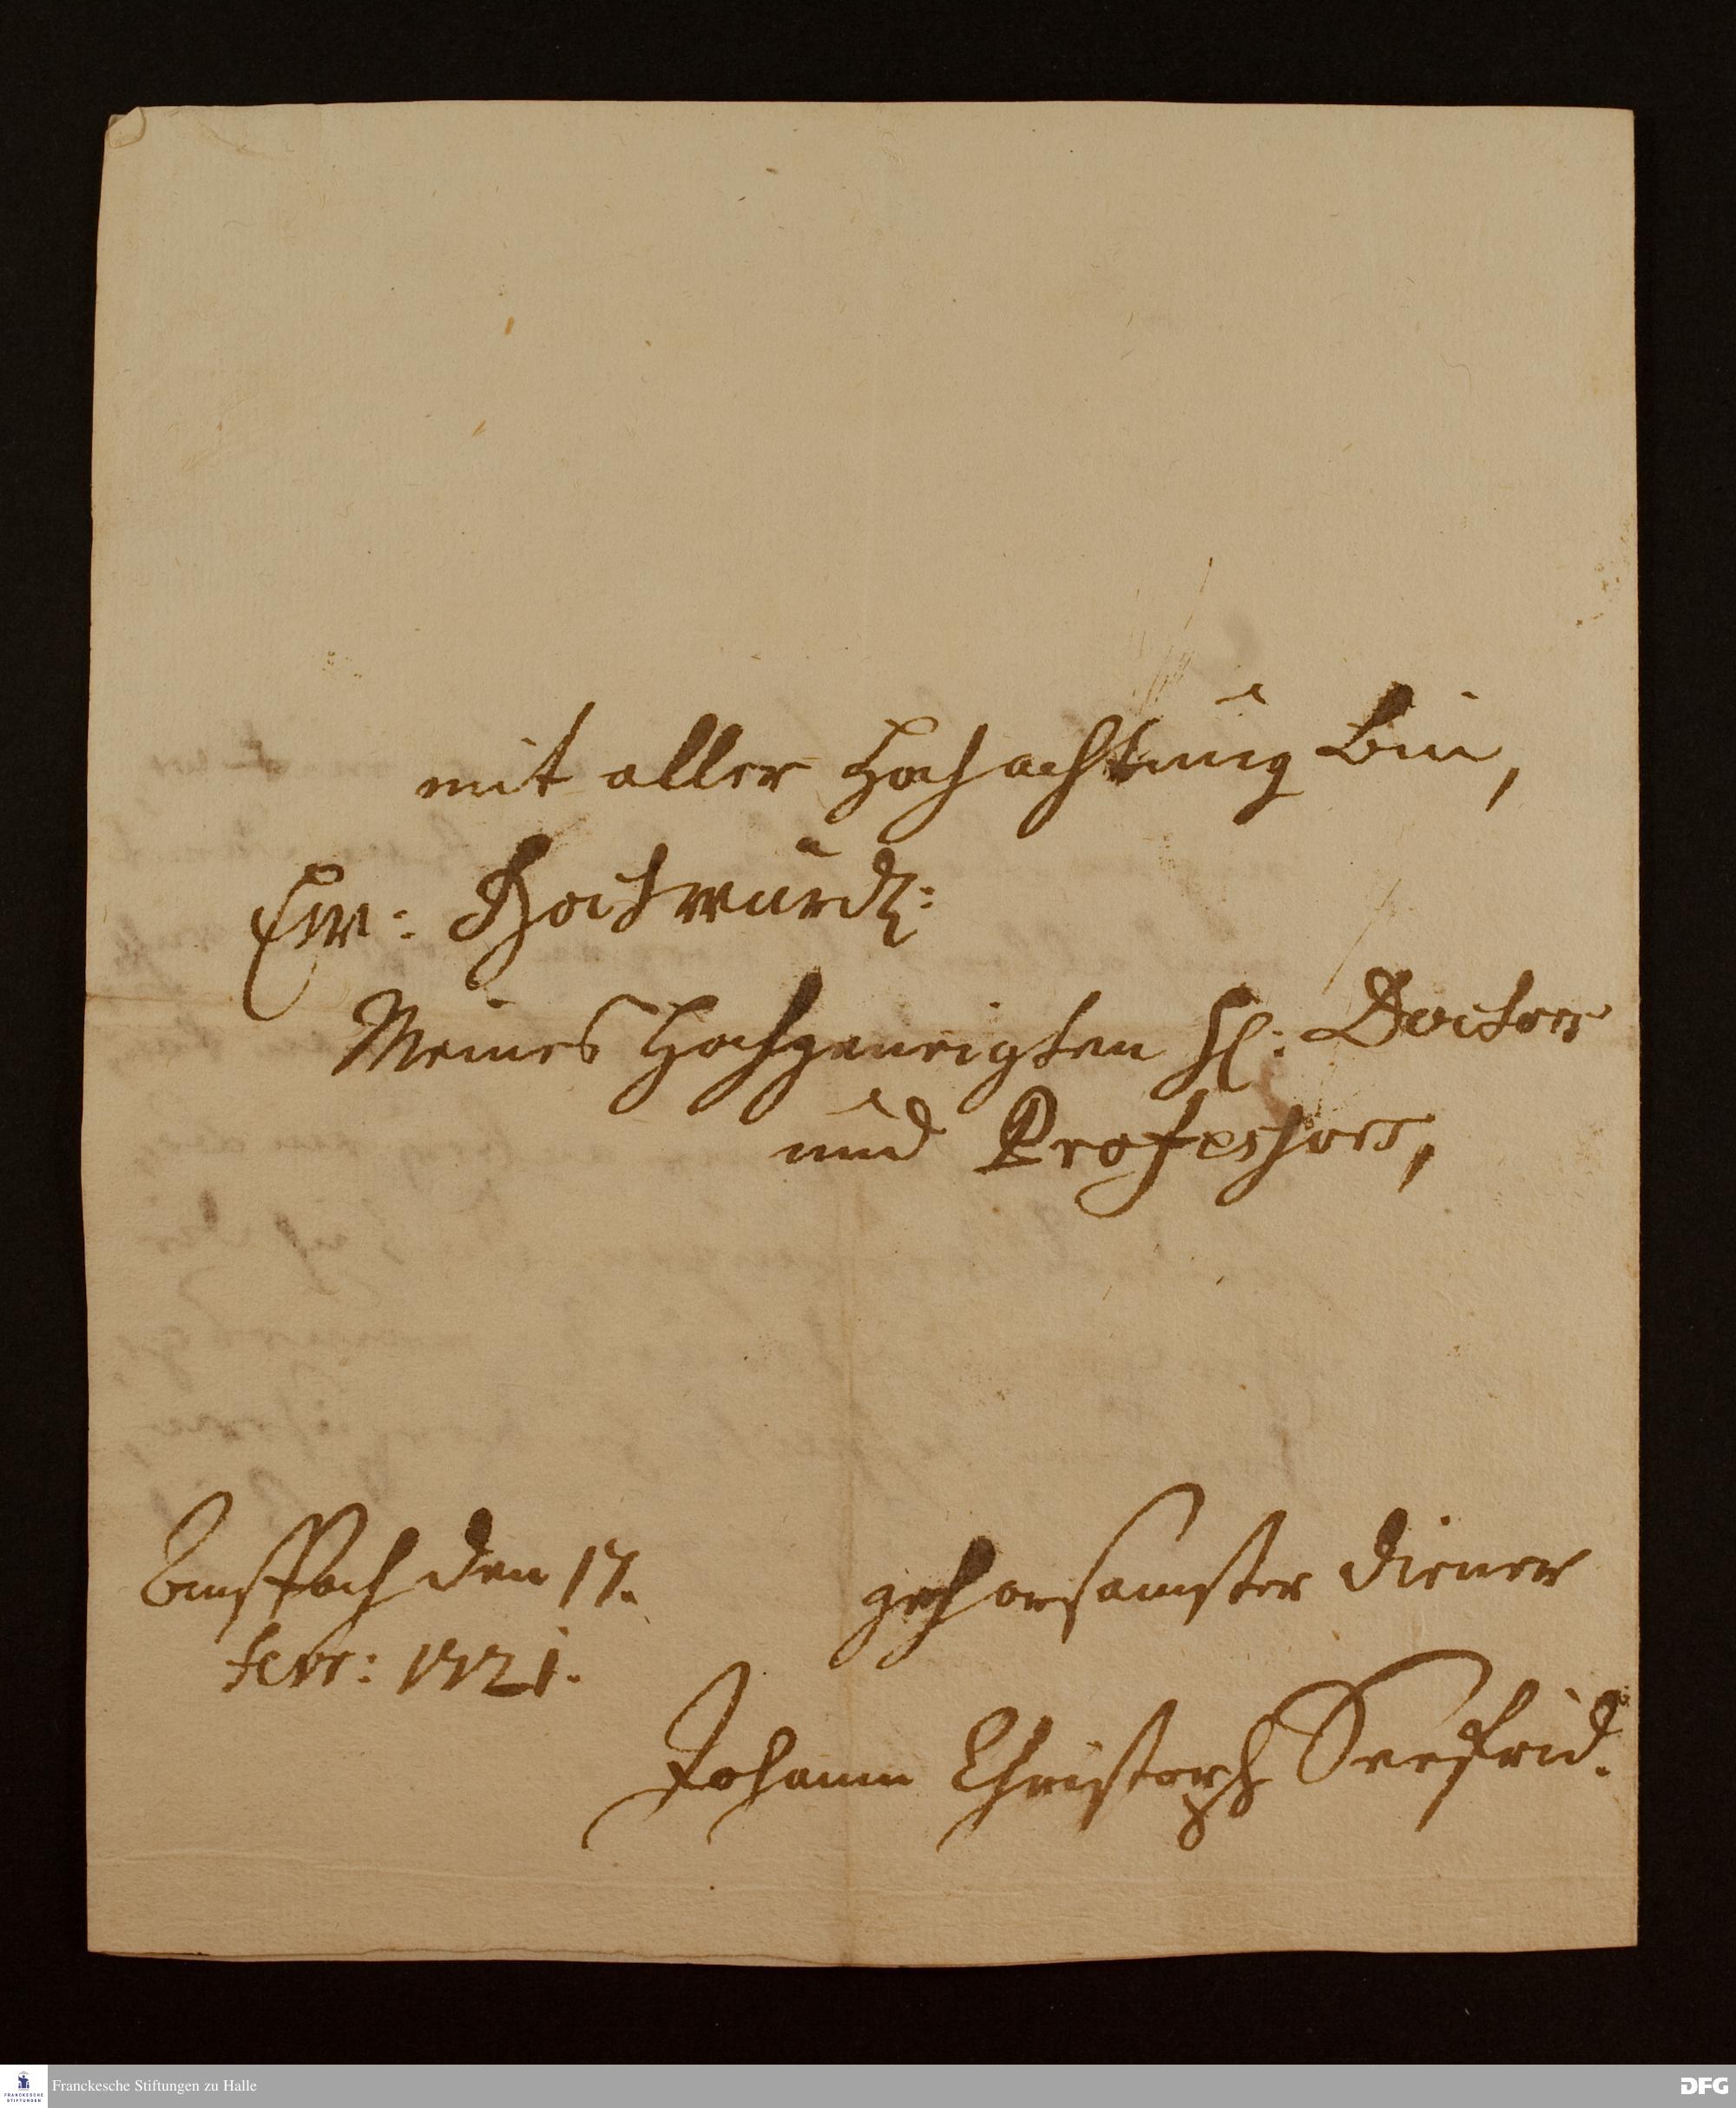 mit aller Hochachtung bin,
Ew: Hochwürd:
Meines Hochgeneigten H: Doctors
und Professors,
den 17.
Febr: 1721.
gehorsamster Diener
Johann Christoph Seefrid.
Franckesche Stiftungen zu Halle
FRANCKESCHE
STIFTUNGEN
DFG